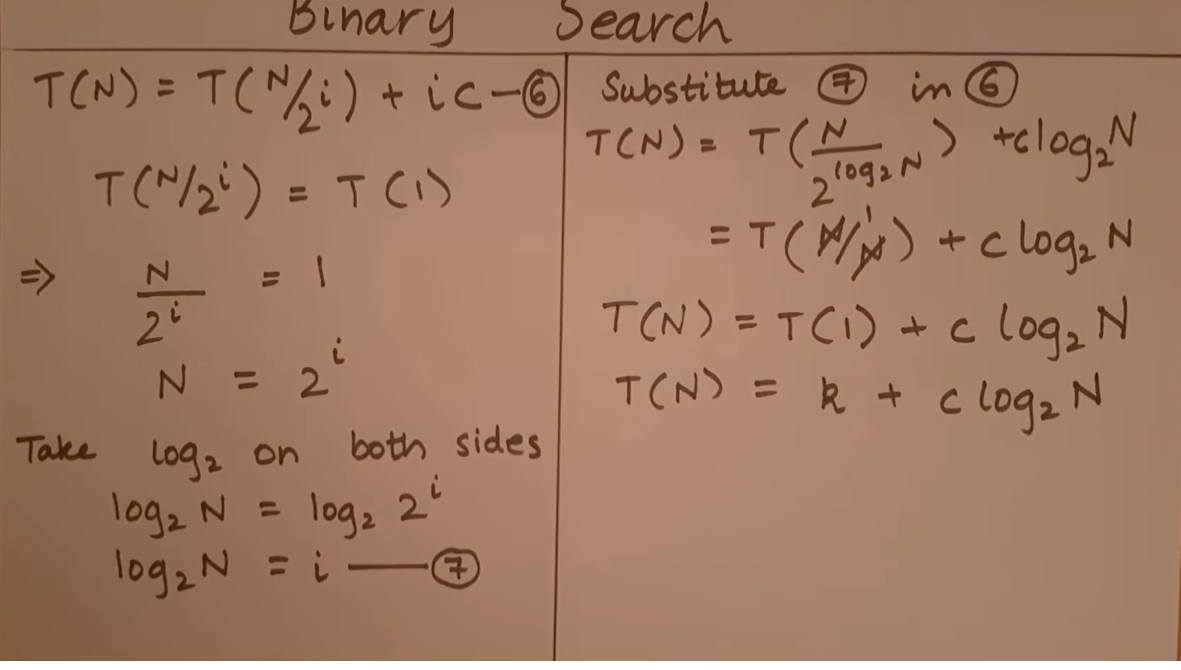 Binary Search
T(N) = T(N/2^i) + ic — ⑥
T(N/2^i) = T(1)
⇒ N/2^i = 1
N = 2^i
Take log₂ on both sides
log₂ N = log₂ 2^i
log₂ N = i — ⑦
Substitute ⑦ in ⑥
T(N) = T(N/2^(log₂ N)) + c log₂ N
= T(N/N) 1 + c log₂ N
T(N) = T(1) + c log₂ N
T(N) = k + c log₂ N